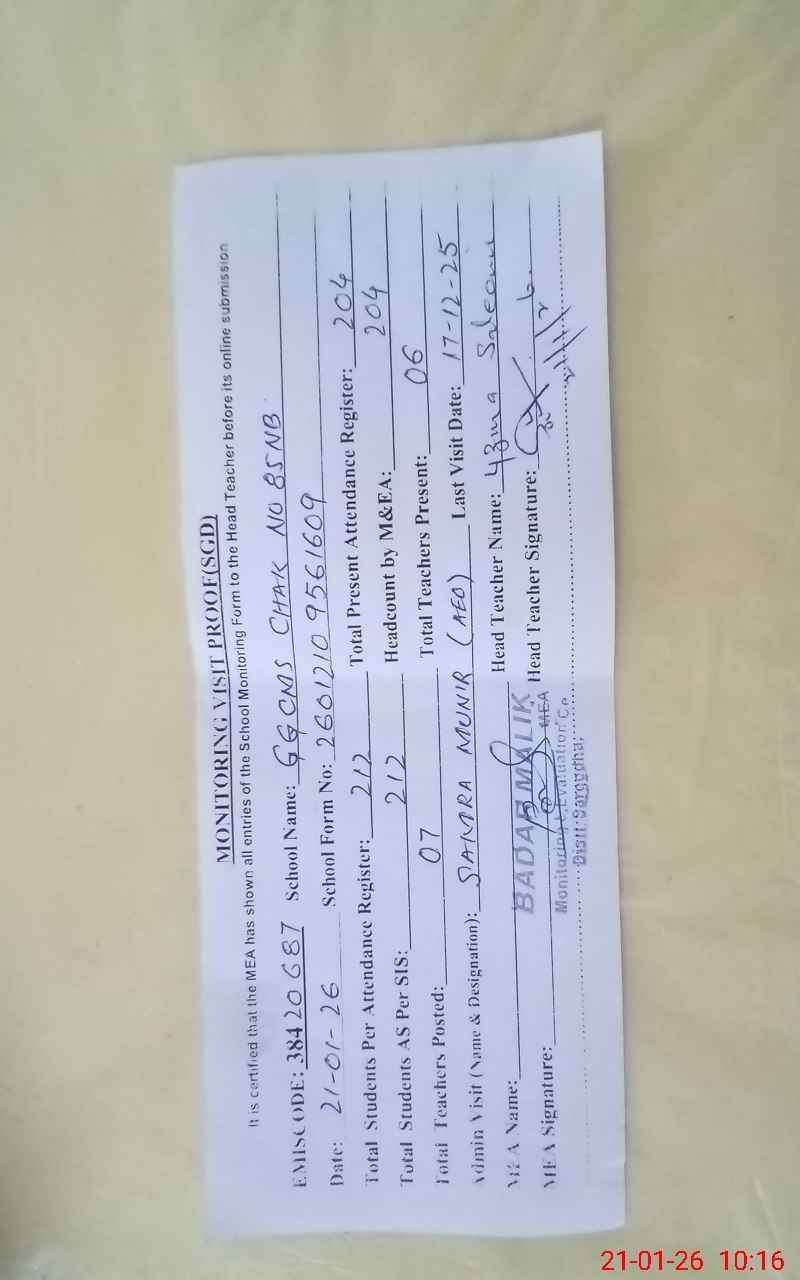 MONITORING VISIT PROOF(SGD)
It is certified that the MEA has shown all entries of the School Monitoring Form to the Head Teacher before its online submission
EMISCODE: 38420687 School Name: GGCMS CHAK NO 85NB
Date: 21-01-26 School Form No: 26012109561609
Total Students Per Attendance Register: 212 Total Present Attendance Register: 204
Total Students AS Per SIS: 212 Headcount by M&EA: 204
Total Teachers Posted: 07 Total Teachers Present: 06
Admin Visit (Name & Designation): SAMRA MUNIR (AEO) Last Visit Date: 17-12-25
MEA Name: BADAR MALIK Head Teacher Name: Uzma Saleemi
MEA Signature: MEA Head Teacher Signature:
Monitoring & Evaluation
Distt: Sargodha.
21-01-26 10:16